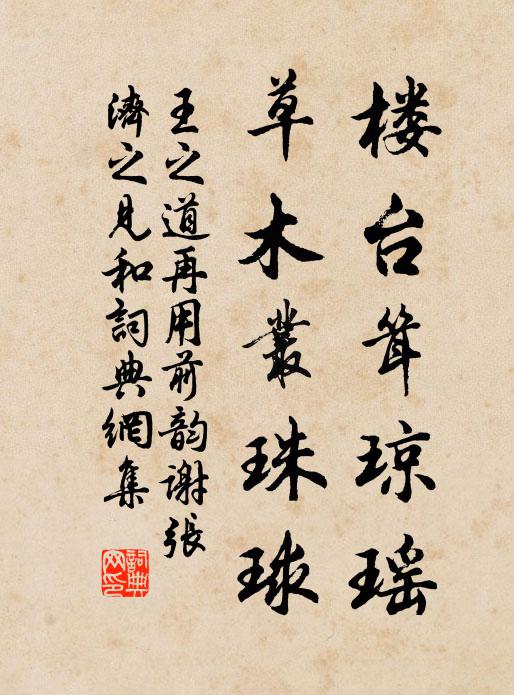 楼台耸琼瑶
草木叢珠球
王之道再用前韵谢張
濟之見和詞典網集
詞典网印